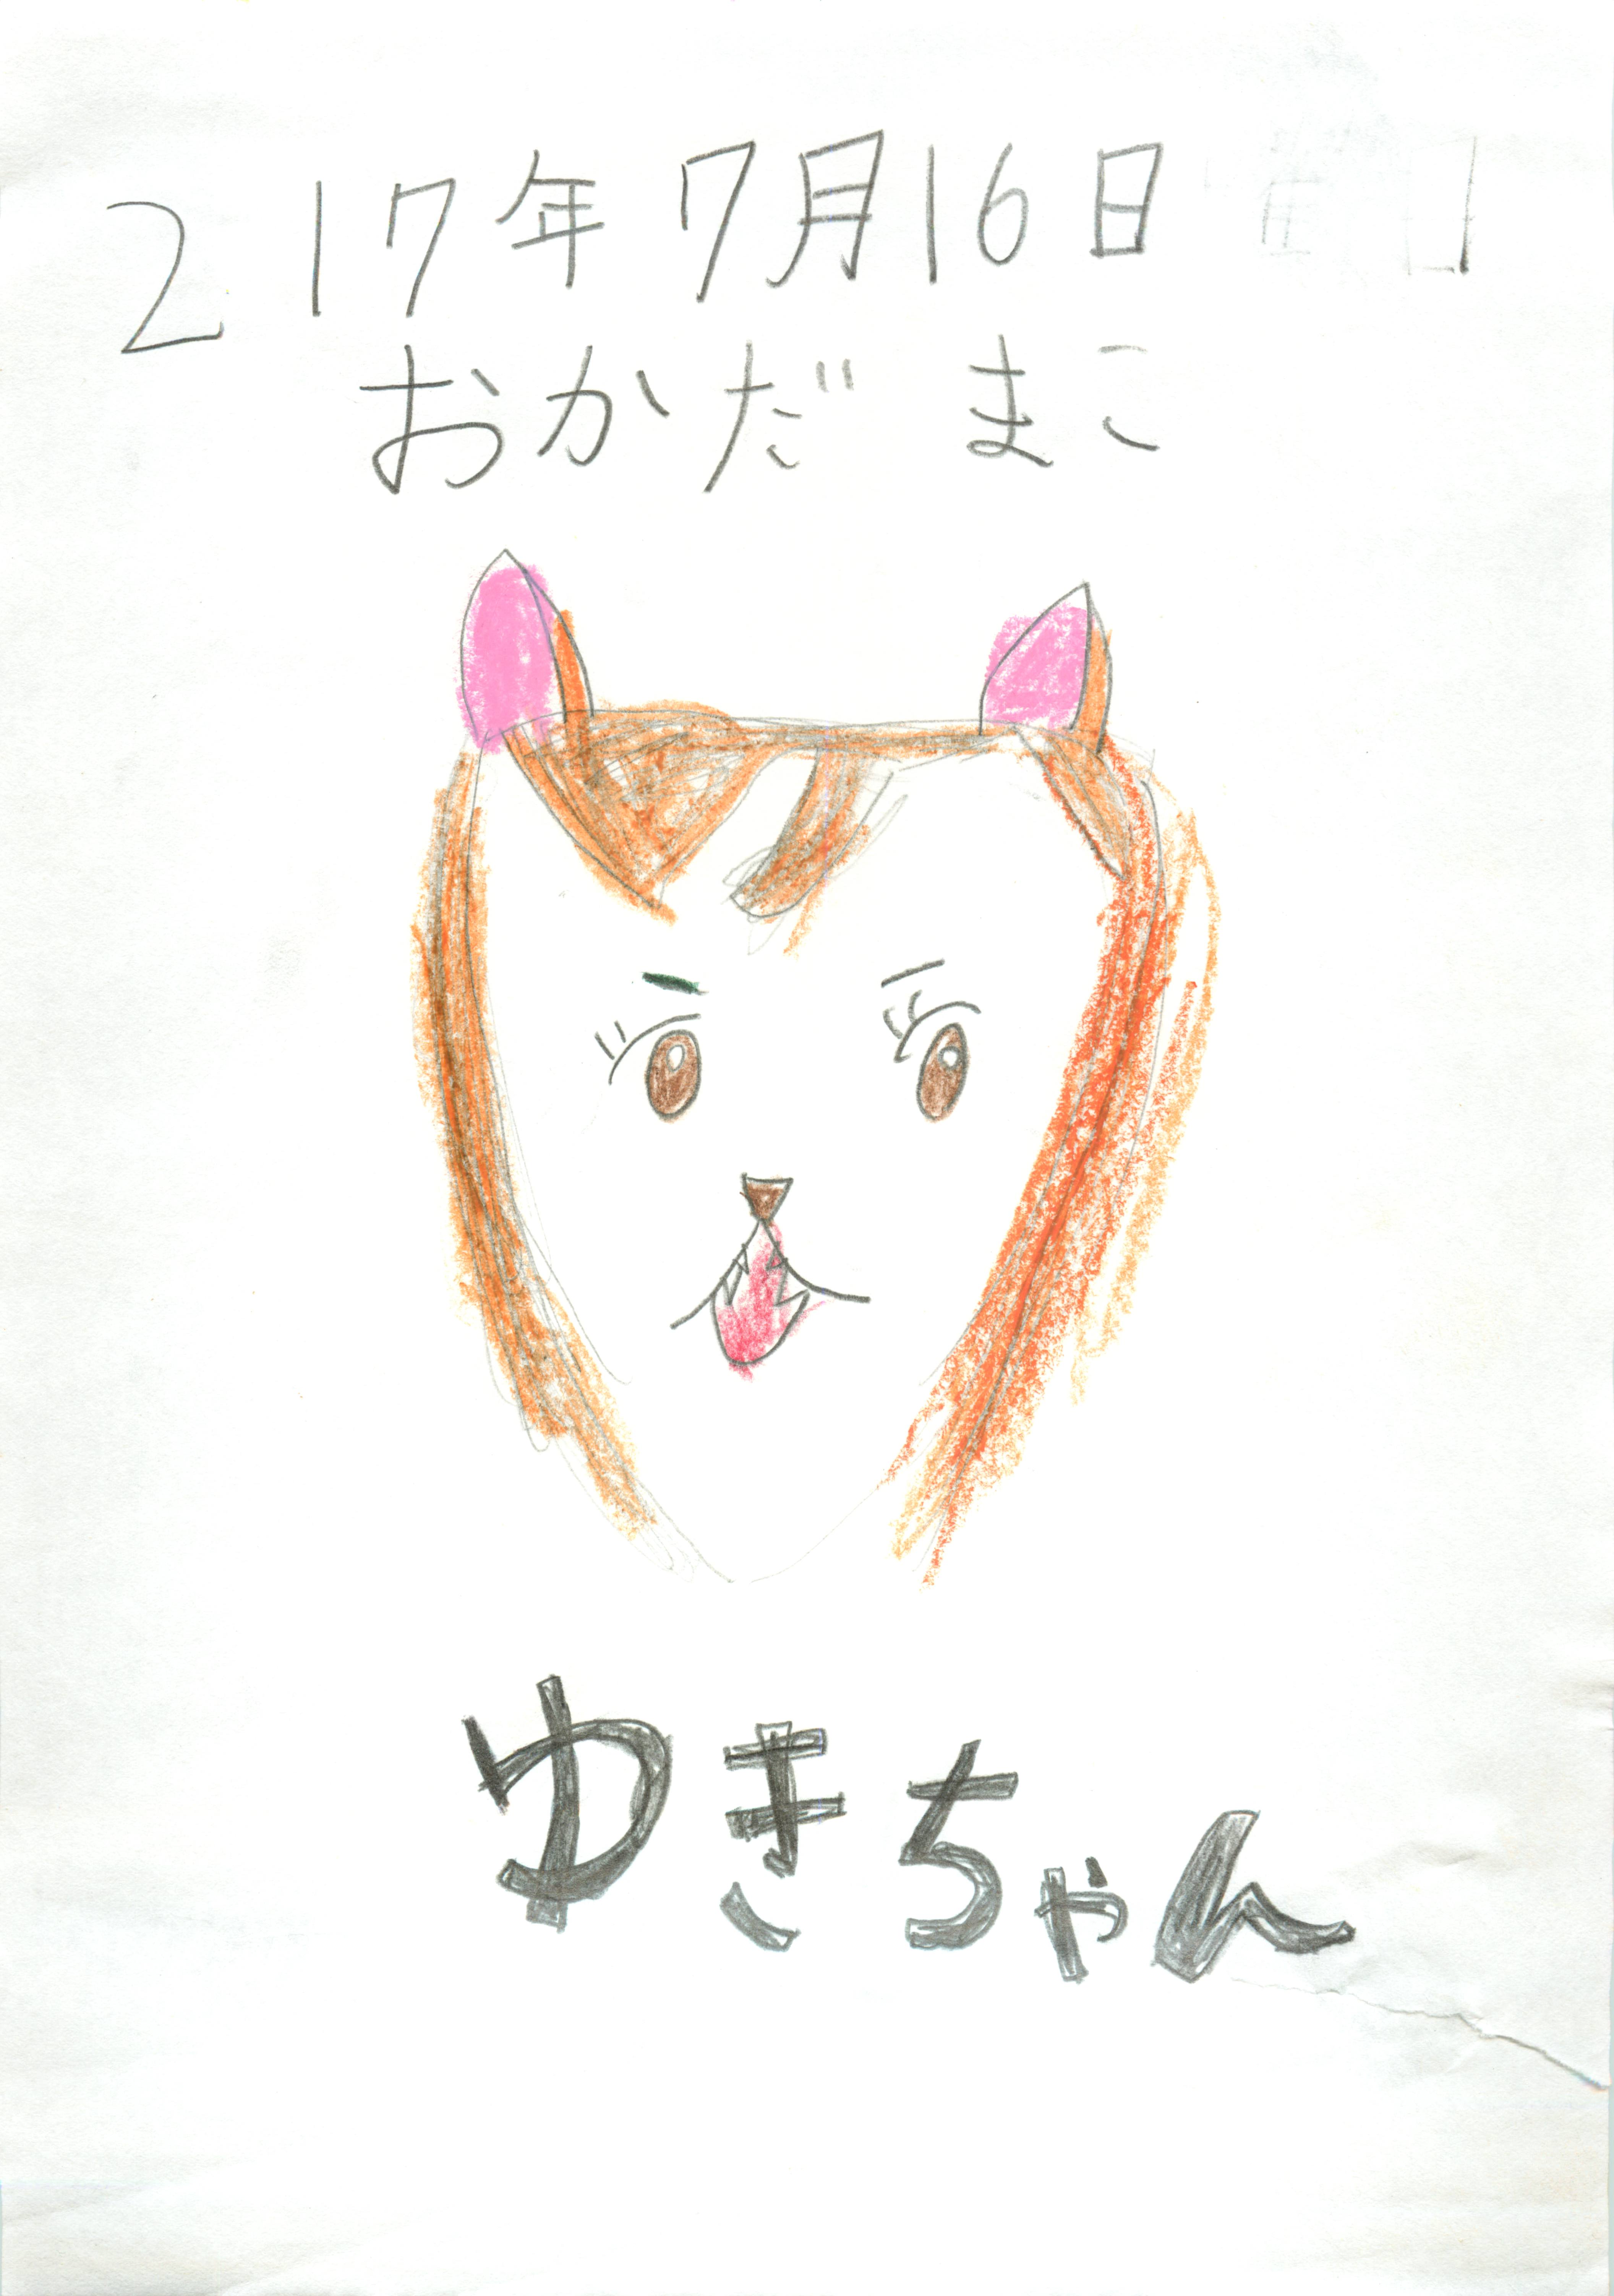 217年7月16日
おかだ まこ
ゆきちゃん